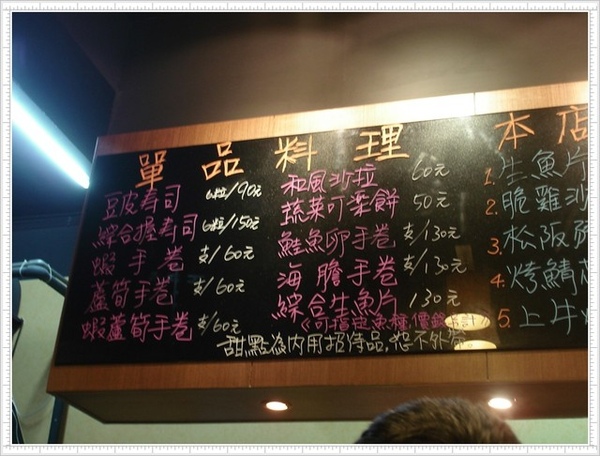 單品料理
豆皮壽司 6粒/90元
綜合握壽司 6粒/150元
蝦手卷 支/60元
蘆筍手卷 支/60元
蝦蘆筍手卷 支/60元
和風沙拉 60元
蔬菜可樂餅 50元
鮭魚卵手卷 支/130元
海膽手卷 支/130元
綜合生魚片 130元
《可指定魚種價錢
甜點為內用招待品,恕不外帶。
本店
1. 生魚片
2. 脆雞沙
3. 松阪豬
4. 烤鯖
5. 上牛